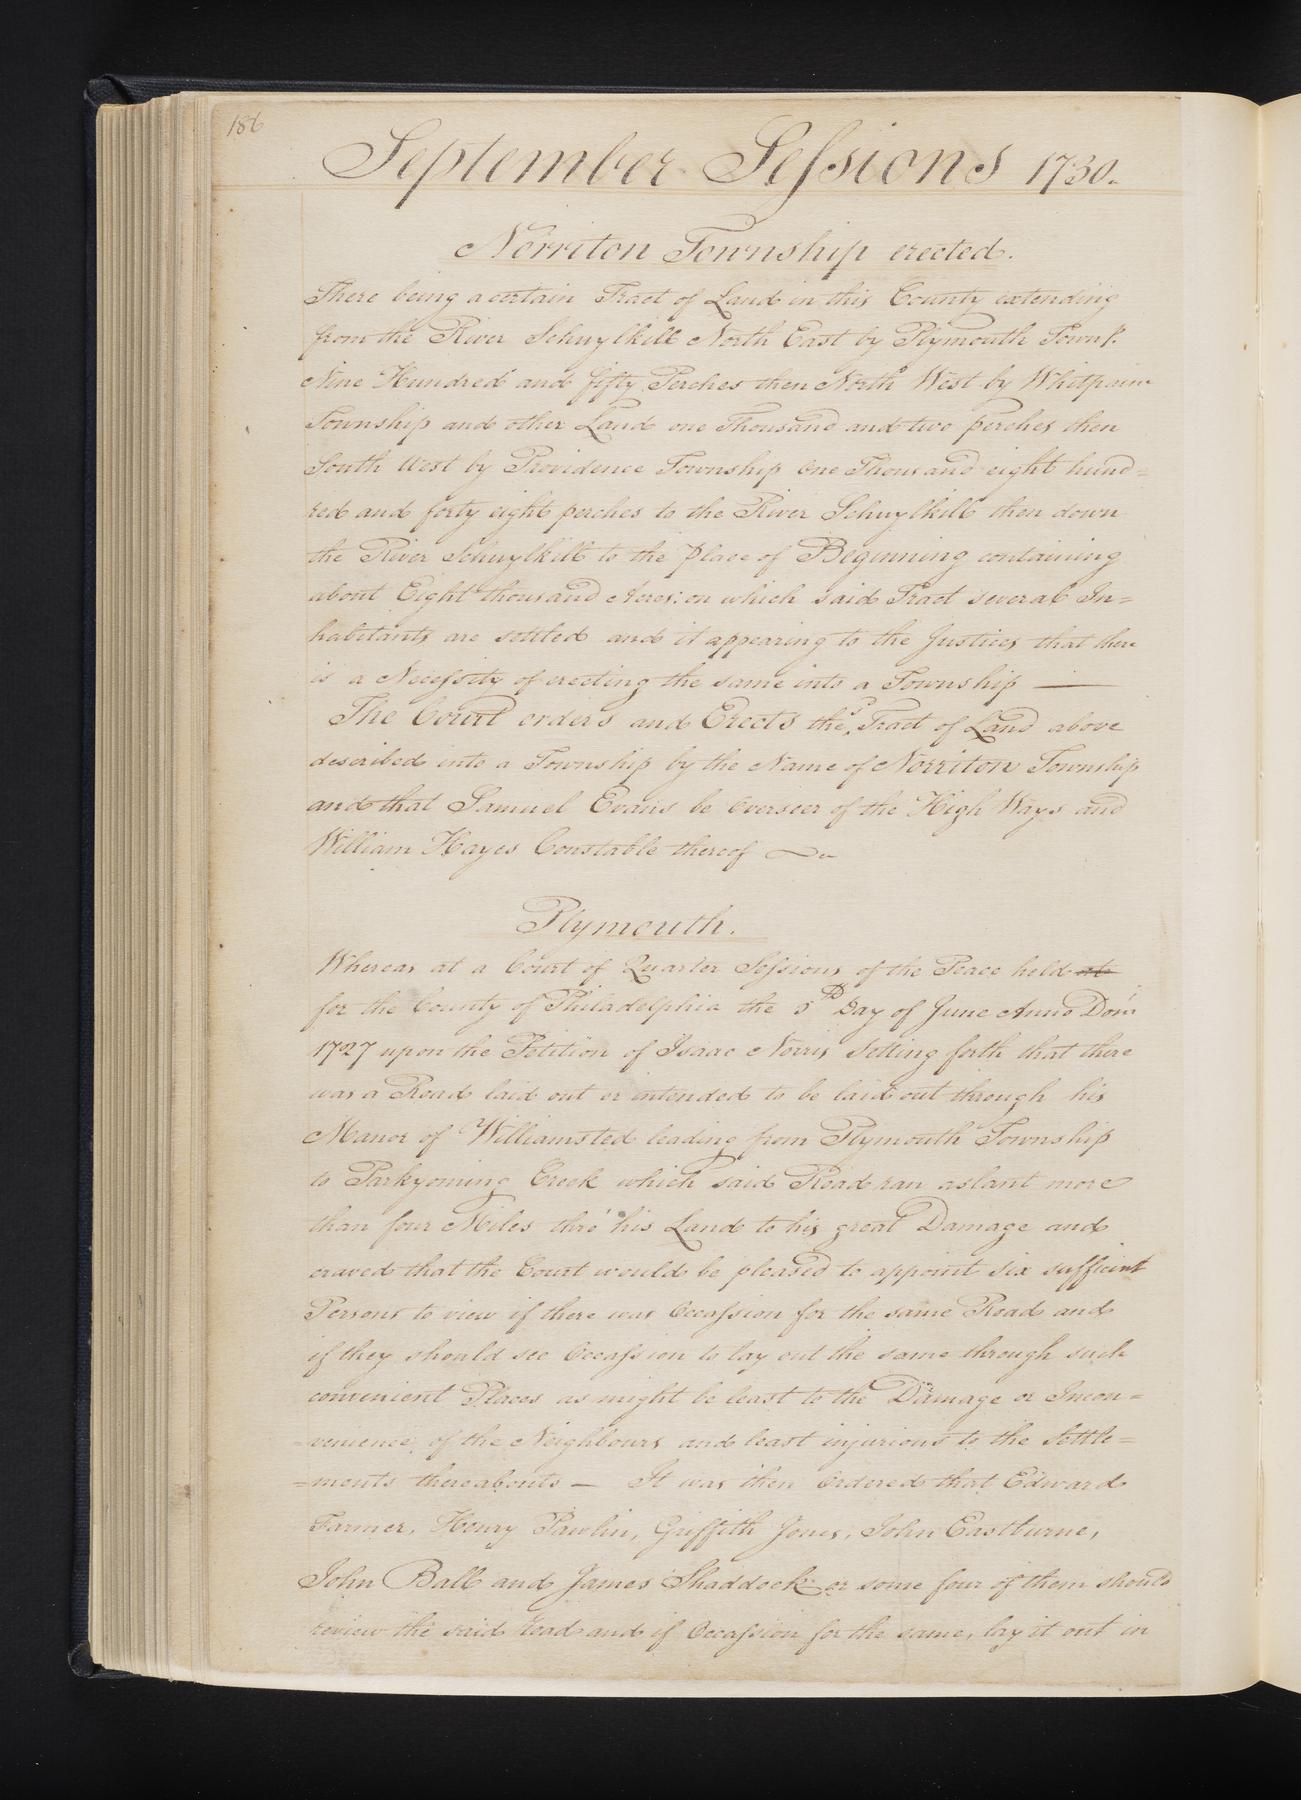 186
September Sessions 1730.
Norriton Township erected.
There being a certain Tract of Land in this County extending
from the River Schuylkill North East by Plymouth Townp.
Nine Hundred and fifty Perches then North West by Whitpaine
Township and other Land one Thousand and two perches then
South West by Providence Township One Thousand eight hund=
red and forty eight perches to the River Schuylkill then down
the River Schuylkill to the place of Beginning containing
about Eight thousand Acres: on which said Tract several In=
habitants are settled and it appearing to the Justices that there
is a Necessity of erecting the same into a Township —
The Court orders and Erects the sd Tract of Land above
described into a Township by the Name of Norriton Township
and that Samuel Evans be Overseer of the High Ways and
William Hayes Constable thereof
Plymouth.
Whereas at a Court of Quarter Sessions of the Peace held at
for the County of Philadelphia the 5th Day of June Anno Dom
1727 upon the Petition of Isaac Norris Setting forth that there
was a Road laid out or intended to be laid out through his
Manor of Williamsted leading from Plymouth Township
to Parkyoming Creek which said Road ran aslant more
than four Miles thro' his Land to his great Damage and
craved that the Court would be pleased to appoint six sufficient
Persons to view if there was Occassion for the same Road and
if they should see Occassion to lay out the same through such
convenient Places as might be least to the Damage or Incon=
=venience of the Neighbours and least injurious to the Settle=
=ments thereabouts — It was then Ordered that Edward
Farmer, Henry Pawlin, Griffith Jones, John Eastburne,
John Ball and James Shaddock or some four of them should
review the said road and if Occassion for the same, lay it out in